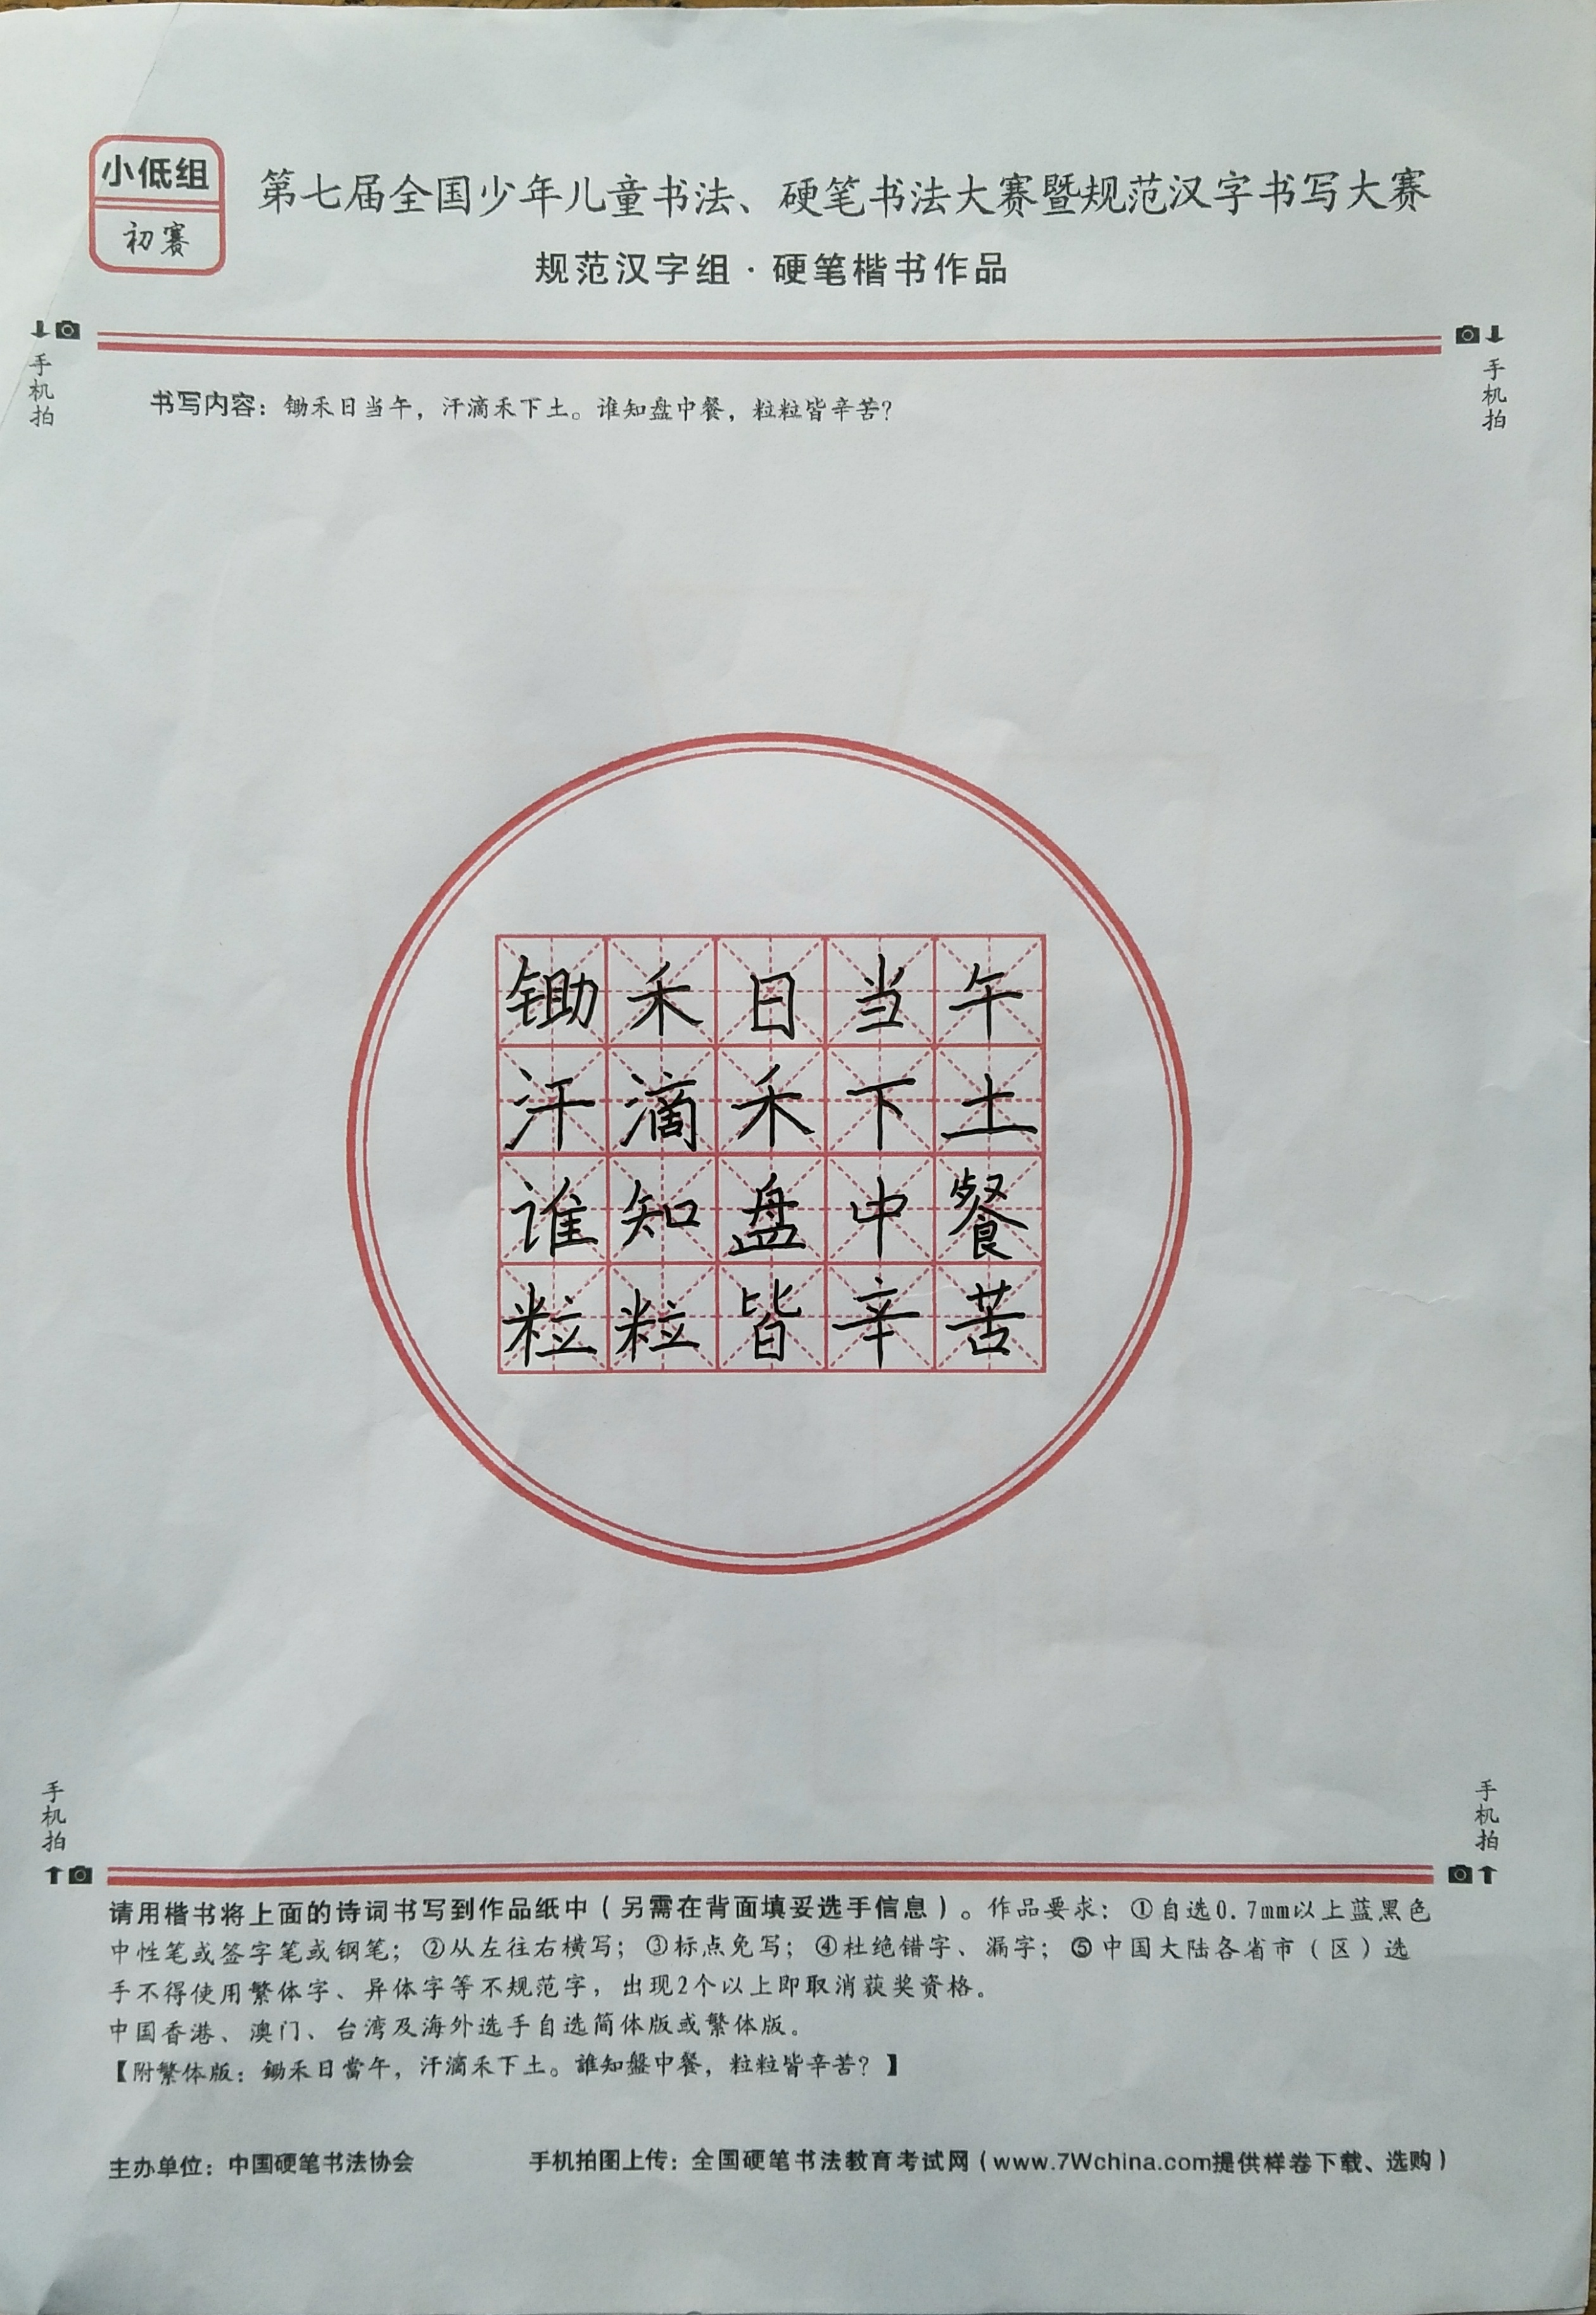 小低组
初赛
第七届全国少年儿童书法、硬笔书法大赛暨规范汉字书写大赛
规范汉字组·硬笔楷书作品
手机拍
手机拍
书写内容：锄禾日当午，汗滴禾下土。谁知盘中餐，粒粒皆辛苦？
锄禾日当午
汗滴禾下土
谁知盘中餐
粒粒皆辛苦
手机拍
手机拍
请用楷书将上面的诗词书写到作品纸中（另需在背面填妥选手信息）。作品要求：①自选0.7mm以上蓝黑色
中性笔或签字笔或钢笔；②从左往右横写；③标点免写；④杜绝错字、漏字；⑤中国大陆各省市（区）选
手不得使用繁体字、异体字等不规范字，出现2个以上即取消获奖资格。
中国香港、澳门、台湾及海外选手自选简体版或繁体版。
【附繁体版：鋤禾日當午，汗滴禾下土。誰知盤中餐，粒粒皆辛苦？】
主办单位：中国硬笔书法协会 手机拍图上传：全国硬笔书法教育考试网（www.7Wchina.com提供样卷下载、选购）